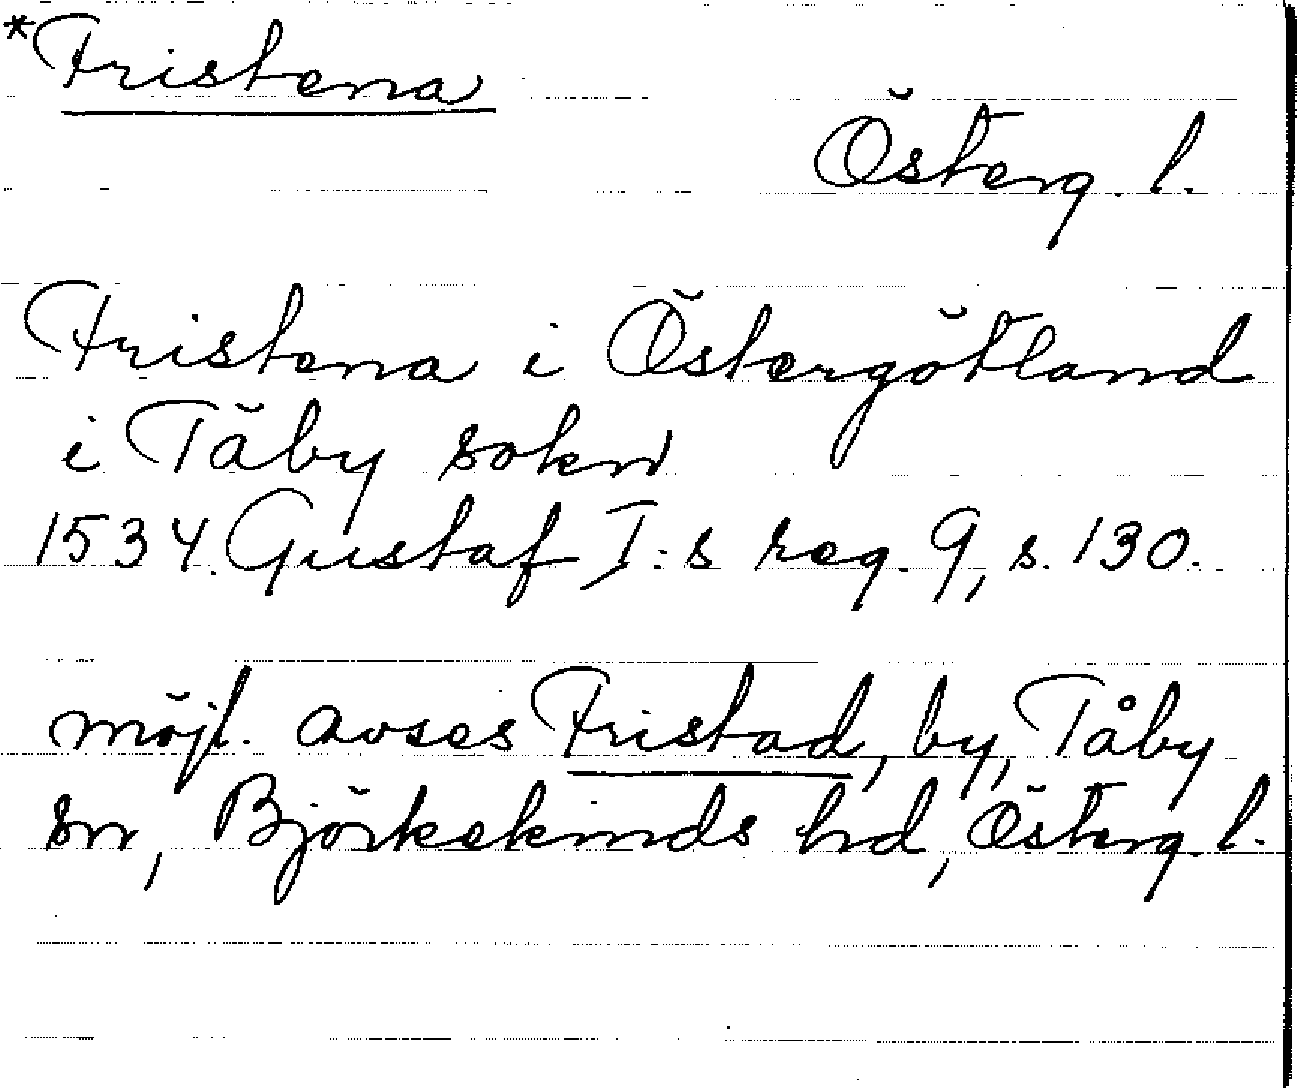 *Fristena
Österg. l.
Fristena i Östergötland
i Tăby sokn
1534. Gustaf I:s reg. 9, s. 130.
möjl. avses Fristad, by, Tåby
sn, Björkekinds hd, Österg. l.